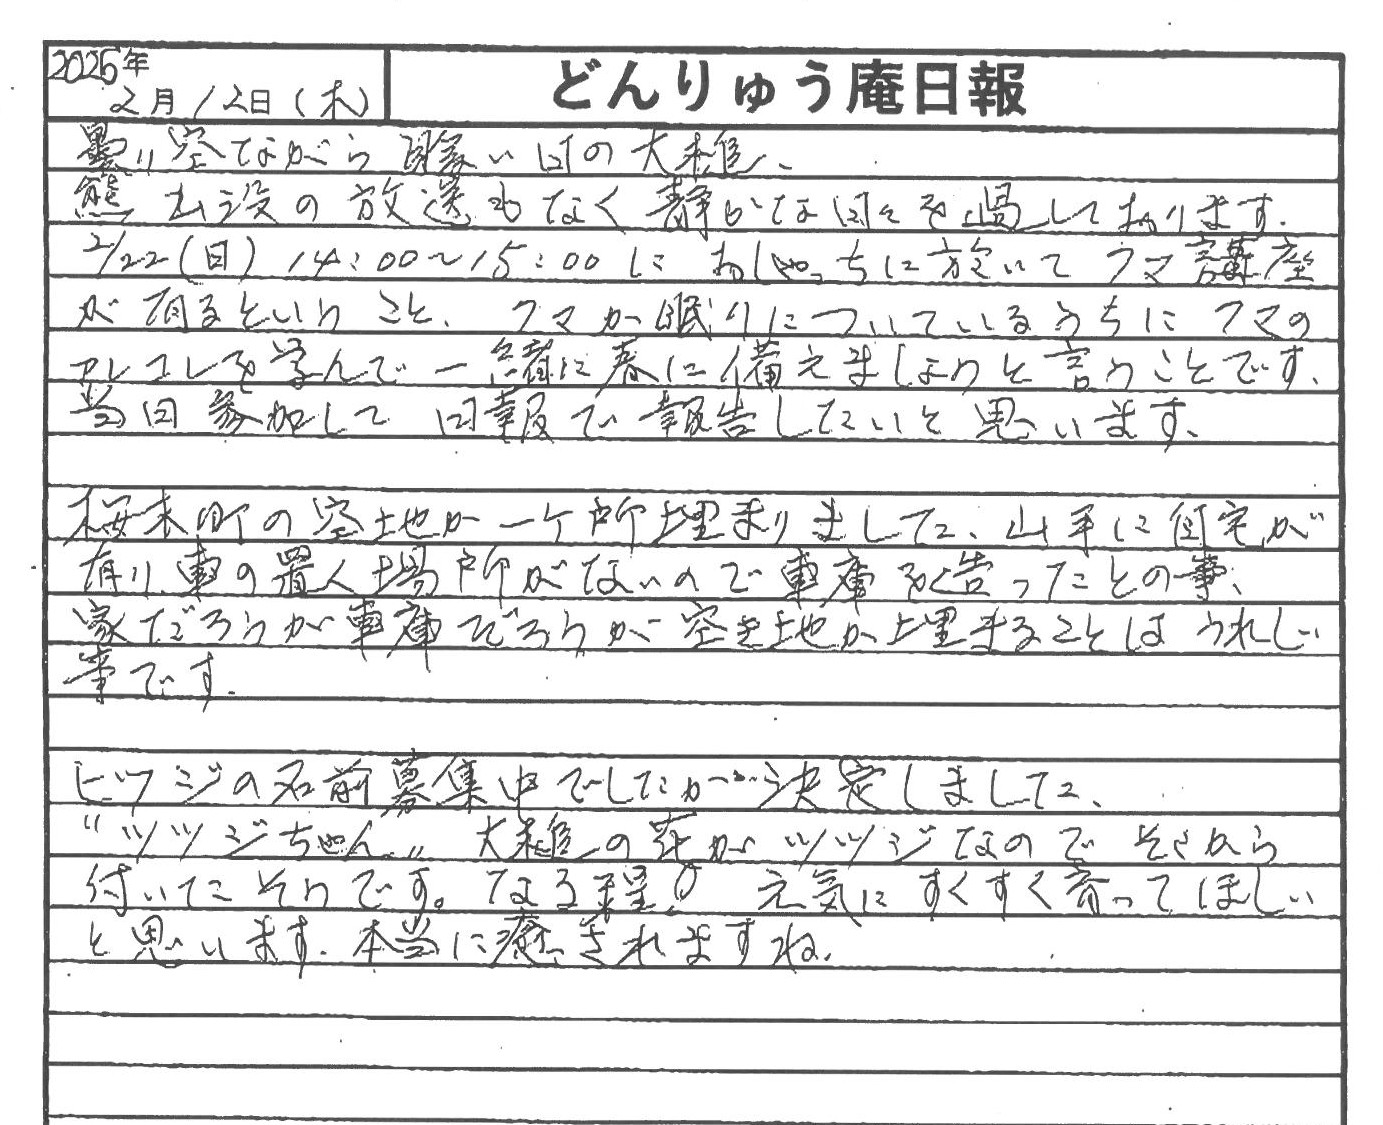 2026年
2月12日(木)
どんりゅう庵日報
曇り空ながら暖い日の大雄、
熊出没の放送もなく静かな日々を過しております.
2/22(日) 14:00~15:00に おしゃっちに於いて クマ講座
が有るということ、クマが眠りについているうちにクマの
アレコレを学んで一緒に春に備えましょうと言うことです、
当日参加して日報で報告したいと思います、
桜木町の空地が一ケ所埋まりました、山手に自宅が
有り車の置く場所がないので車庫を造ったとの事、
家だろうが車庫だろうが空き地が埋まることはうれしい
事です.
ヒツジの名前募集中でしたが…決定しました、
“ツツジちゃん„ 大雄の花がツツジなので そこから
付いたそうです。なる程! 元気にすくすく育ってほしい
と思います. 本当に癒されますね.